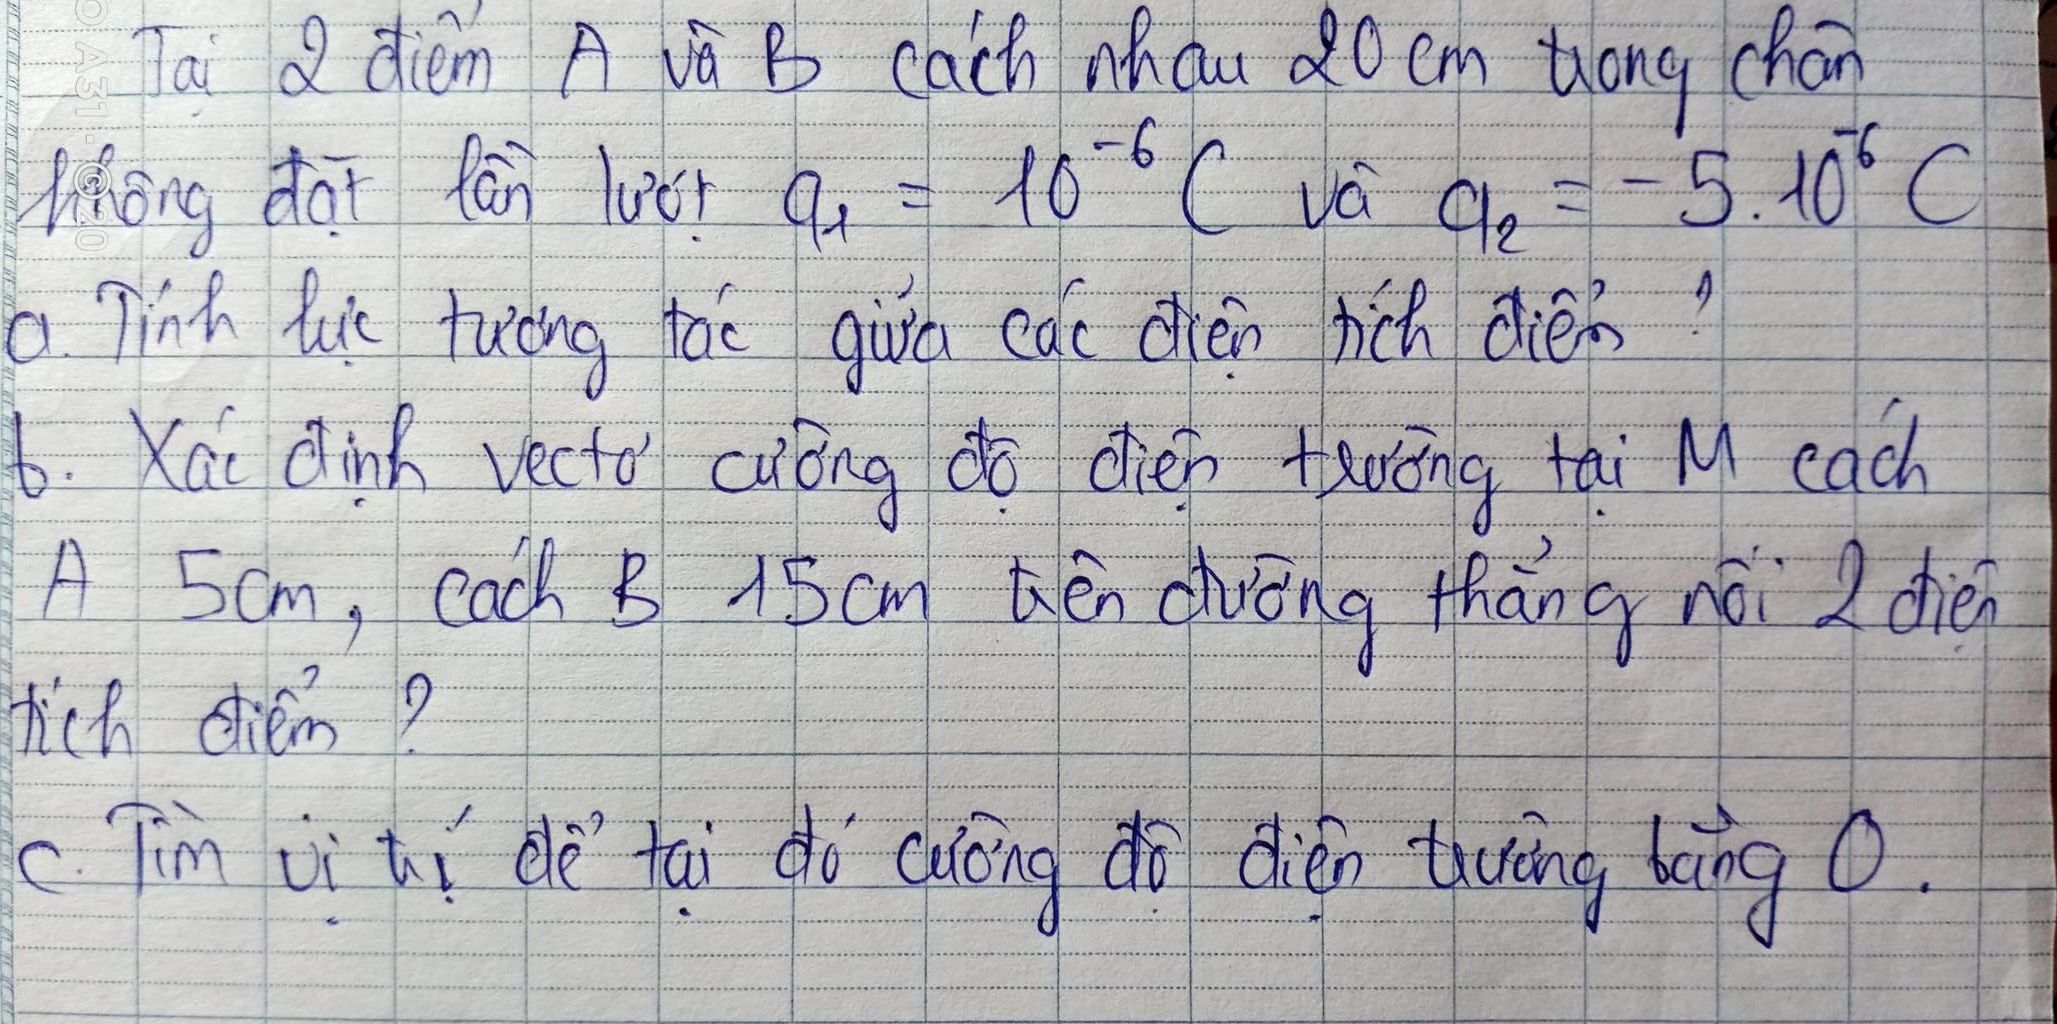 Tại 2 điểm A và B cách nhau 20 cm trong chân
không đặt lần lượt q₁ = 10⁻⁶ C và q₂ = -5.10⁻⁶ C
a. Tính lực tương tác giữa các điện tích điểm ?
b. Xác định vectơ cường độ điện trường tại M cách
A 5cm, cách B 15cm trên đường thẳng nối 2 điện
tích điểm ?
c. Tìm vị trí để tại đó cường độ điện trường bằng 0.